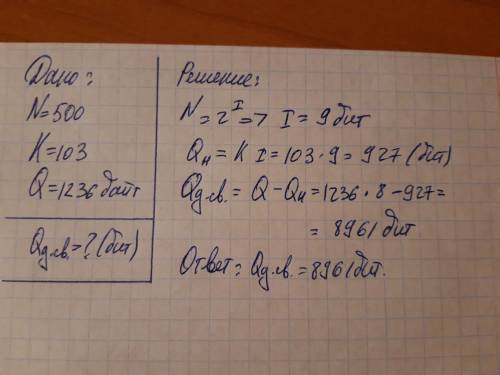 Дано:
N=500
K=103
Q=1236 байт
Qд.св.=? (бит)
Решение:
N=2^I => I = 9 бит
Qн = K I = 103·9 = 927 (бит)
Qд.св. = Q - Qн = 1236·8 - 927 =
= 8961 бит
Ответ: Qд.св. = 8961 бит.